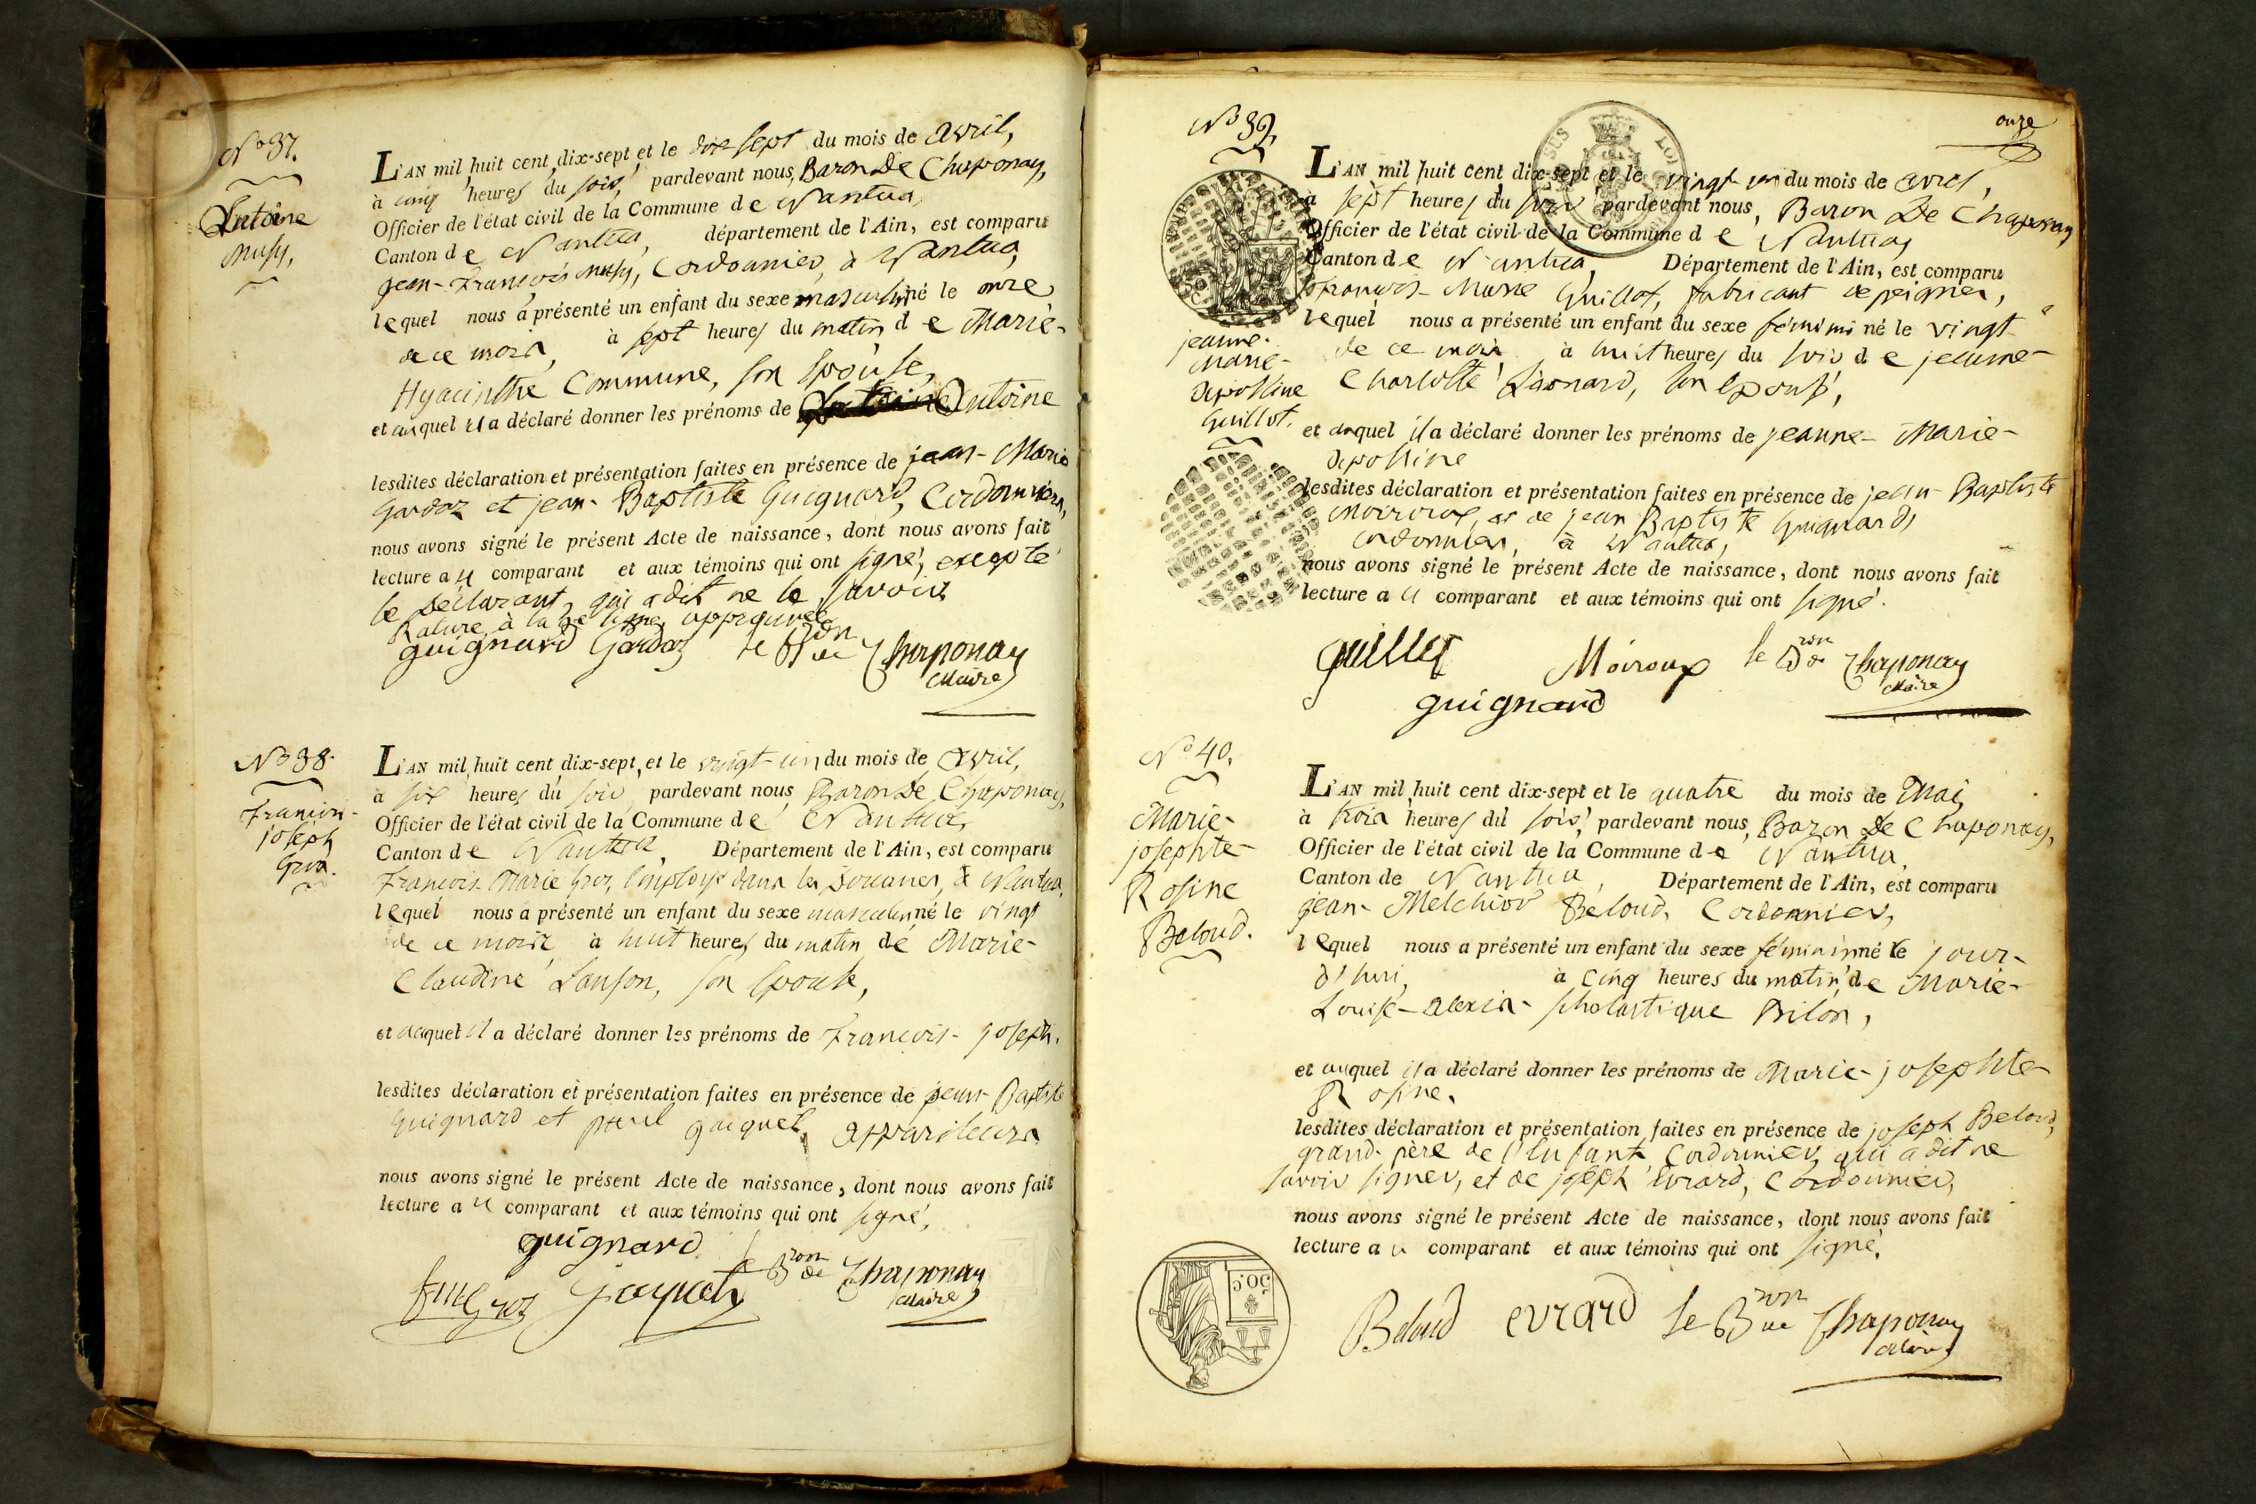 N° 37.
Antoine
Musy,
L'AN mil huit cent dix-sept et le dix sept du mois de avril,
à cinq heures du soir, pardevant nous, Baron De Chaponay,
Officier de l'état civil de la Commune de Nantua,
Canton de Nantua, département de l'Ain, est comparu
jean-François Musy, Cordonnier, à Nantua,
lequel nous a présenté un enfant du sexe masculin né le onze
de ce mois, à sept heures du matin de Marie-
Hyacinthe Commune, son Epouse,
et auquel il a déclaré donner les prénoms de Antoine
lesdites déclaration et présentation faites en présence de jean-Marie
Gardaz et jean-Baptiste Guignard, Cordonniers,
nous avons signé le présent Acte de naissance, dont nous avons fait
lecture au comparant et aux témoins qui ont signé, excepté
le Déclarant, qui a dit ne le savoir
Rature à la ligne, approuvée
guignard Gardaz le Bon de Chaponay
Maire
N° 38.
François-
joseph
Groz.
L'AN mil huit cent dix-sept, et le vingt-un du mois de avril,
à six heures du soir, pardevant nous Baron De Chaponay,
Officier de l'état civil de la Commune de Nantua,
Canton de Nantua, Département de l'Ain, est comparu
François-Marie Groz, Employé dans les Douanes, à Nantua,
lequel nous a présenté un enfant du sexe masculin né le vingt
de ce mois à huit heures du matin de Marie-
Claudine Lanson, son Epouse,
et auquel il a déclaré donner les prénoms de François-joseph.
lesdites déclaration et présentation faites en présence de jean-Baptiste
Guignard et paul jacquet, appariteurs
nous avons signé le présent Acte de naissance, dont nous avons fait
lecture au comparant et aux témoins qui ont signé,
guignard
fmGroz jacquet le Bron de Chaponay
Maire
onze
N° 39.
jeanne-
Marie-
Apolline
Guillot.
L'AN mil huit cent dix-sept et le vingt-un du mois de avril,
à sept heures du soir pardevant nous, Baron De Chaponay
Officier de l'état civil de la Commune de Nantua,
Canton de Nantua, Département de l'Ain, est comparu
François-Marie Guillot, fabricant de peignes,
lequel nous a présenté un enfant du sexe féminin né le vingt
de ce mois à huit heures du soir de jeanne-
Charlotte Léonard, son Epouse,
et auquel il a déclaré donner les prénoms de jeanne-Marie-
Apolline
lesdites déclaration et présentation faites en présence de jean-Baptiste
Moiroux, et de jean Baptiste Guignard,
cordonnier, à Nantua,
nous avons signé le présent Acte de naissance, dont nous avons fait
lecture au comparant et aux témoins qui ont signé.
guillot Moiroux le Bron de Chaponay
Maire
guignard
N° 40.
Marie-
josephte-
Rosine
Beloud.
L'AN mil huit cent dix-sept et le quatre du mois de Mai
à trois heures du soir, pardevant nous, Baron De Chaponay,
Officier de l'état civil de la Commune de Nantua,
Canton de Nantua, Département de l'Ain, est comparu
jean-Melchior Beloud, Cordonnier,
lequel nous a présenté un enfant du sexe féminin né le jour-
d'hui, à cinq heures du matin, de Marie-
Louise-alexis-scholastique Brilon,
et auquel il a déclaré donner les prénoms de Marie-josephte-
Rosine.
lesdites déclaration et présentation faites en présence de joseph Beloud,
grand-père de l'Enfant, Cordonnier, qui a dit ne
savoir signer, et de joseph Evrard, Cordonnier,
nous avons signé le présent Acte de naissance, dont nous avons fait
lecture au comparant et aux témoins qui ont signé.
50.c
Beloud evrard le Bron de Chaponay
Maire